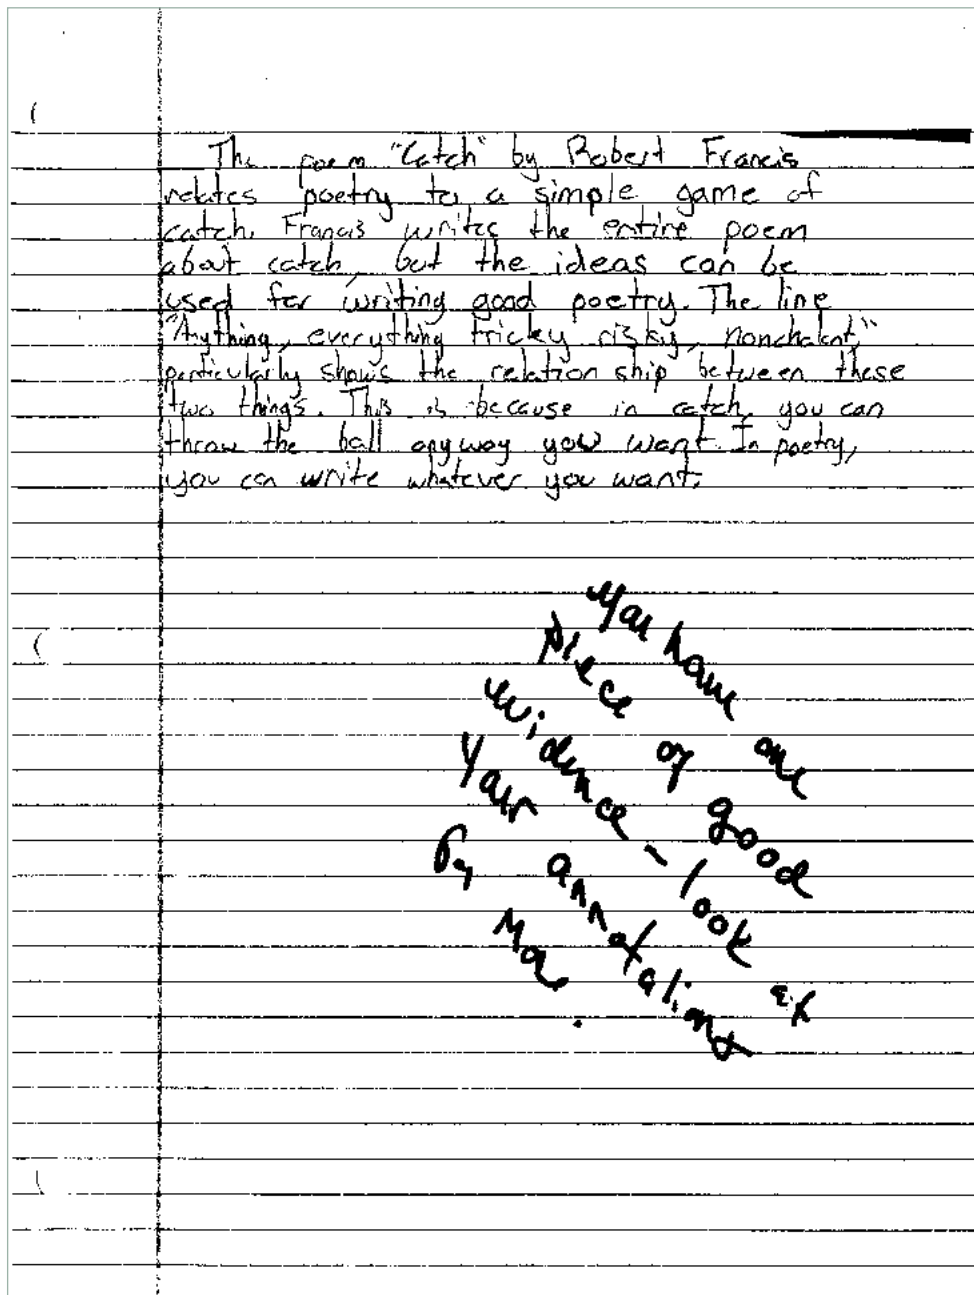 The poem "Catch" by Robert Francis
relates poetry to a simple game of
catch. Francis writes the entire poem
about catch, but the ideas can be
used for writing good poetry. The line
"Anything, everything tricky risky, nonchalant,"
particularly shows the relation ship between these
two things. This is because in catch, you can
throw the ball anyway you want. In poetry,
you can write whatever you want.
You have one
piece of good
evidence - look at
your annotations
for more.